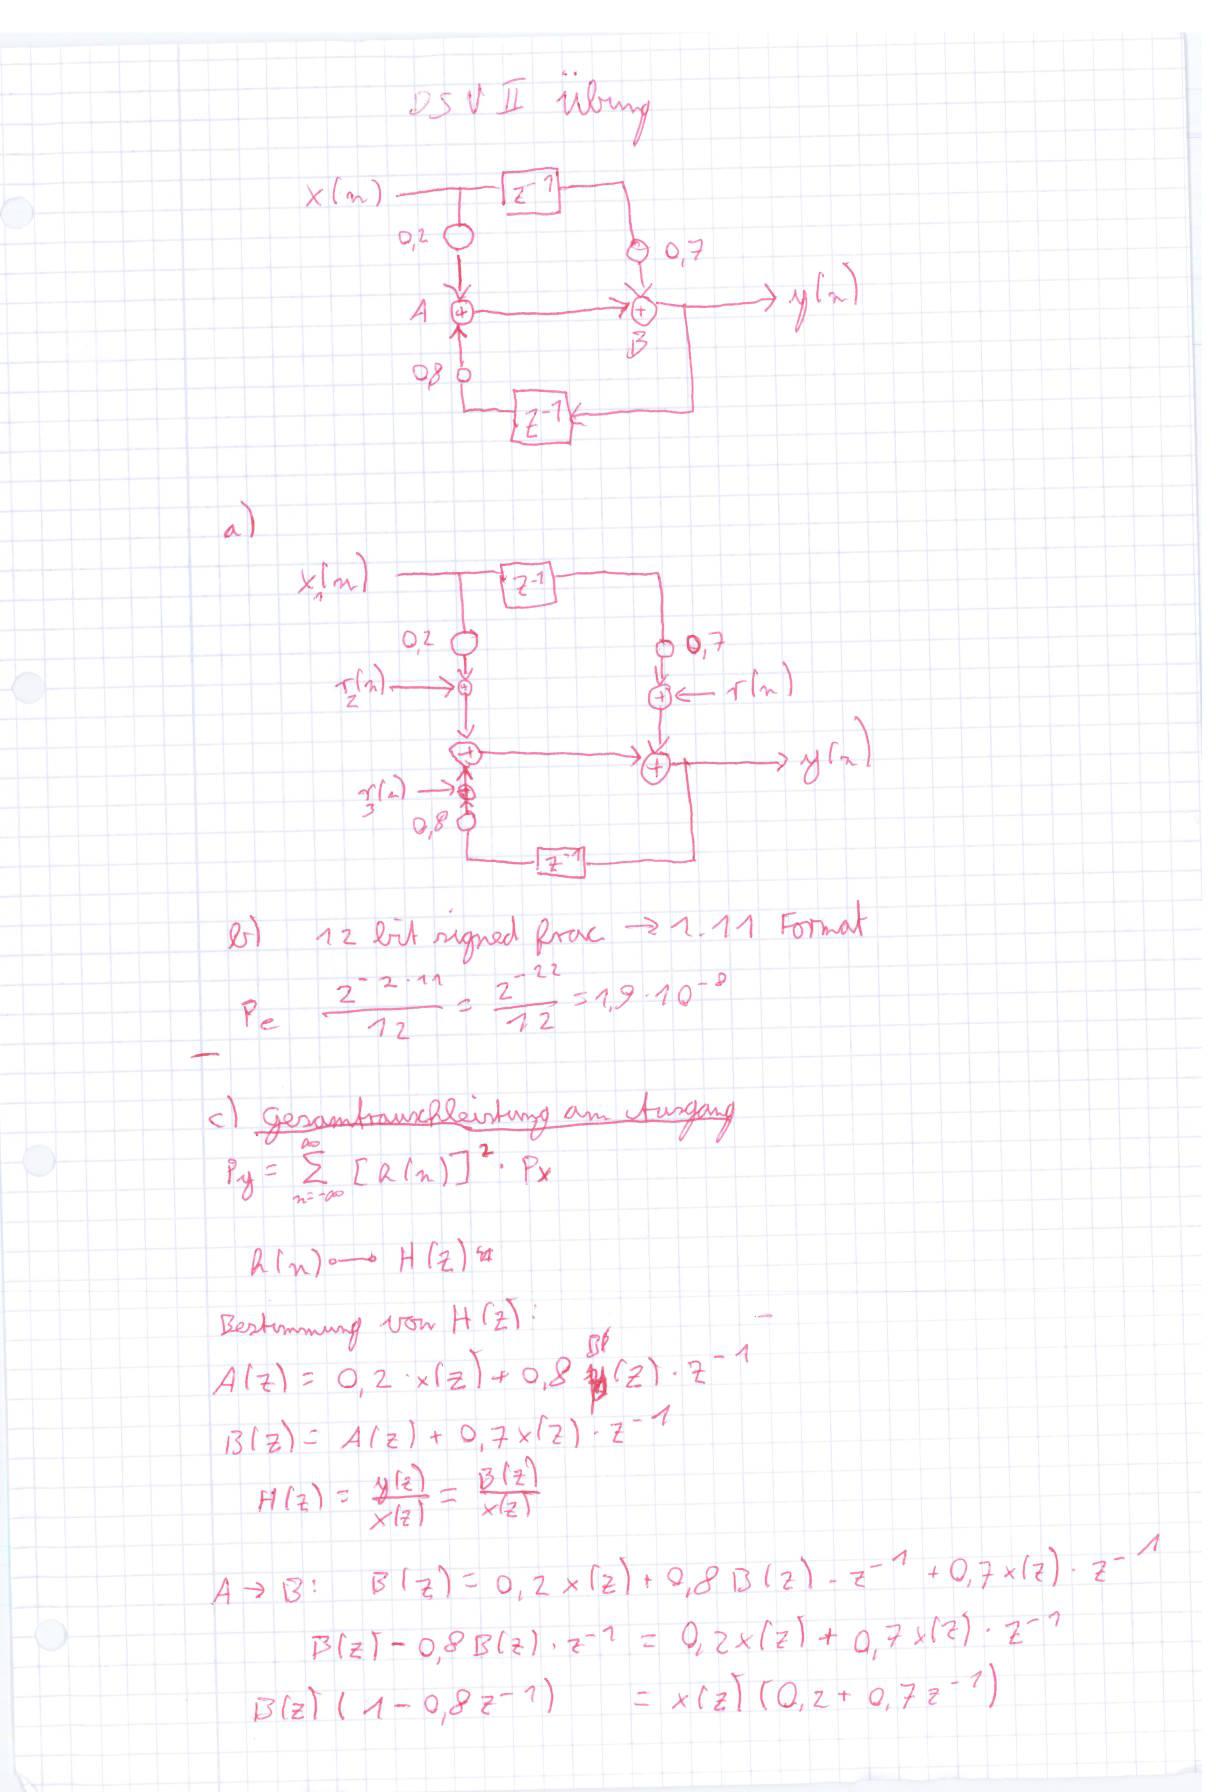 DSV II Übung
x(n) z⁻¹
0,2 0,7
A + + y(n)
B
0,8
z⁻¹
a)
x₁(n) z⁻¹
0,2 0,7
r₂(n) + + r(n)
+ + y(n)
r₃(n) +
0,8
z⁻¹
b) 12 bit signed frac → 1.11 Format
Pe 2^(-2·11)/12 = 2^(-22)/12 = 1,9·10⁻⁸
c) Gesamtrauschleistung am Ausgang
Py = ∑_{n=-∞}^{∞} [h(n)]² · Px
h(n) ○—● H(z)
Bestimmung von H(z):
A(z) = 0,2 · x(z) + 0,8 B(z) · z⁻¹
B(z) = A(z) + 0,7 x(z) · z⁻¹
H(z) = y(z)/x(z) = B(z)/x(z)
A → B: B(z) = 0,2 x(z) + 0,8 B(z) · z⁻¹ + 0,7 x(z) · z⁻¹
B(z) - 0,8 B(z) · z⁻¹ = 0,2 x(z) + 0,7 x(z) · z⁻¹
B(z) (1 - 0,8 z⁻¹) = x(z) (0,2 + 0,7 z⁻¹)